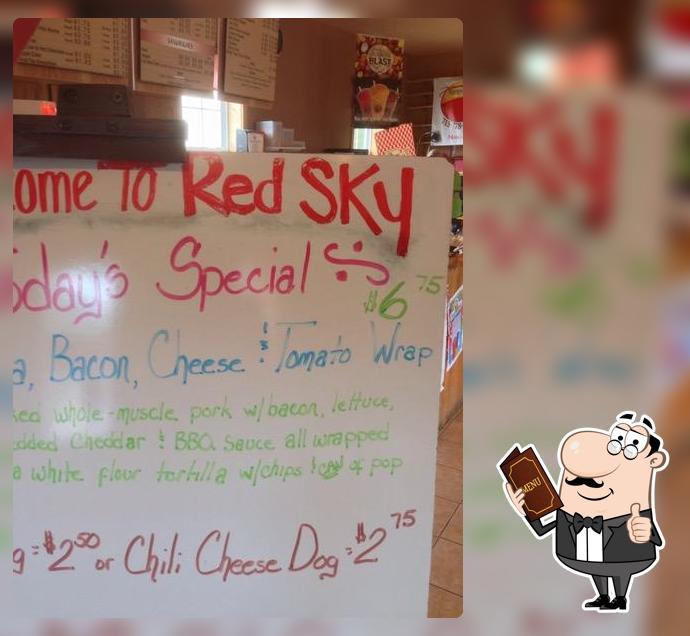 SANDWICHES
BLAST
ome To Red Sky
day's Special
$6 75
a, Bacon, Cheese & Tomato Wrap
ked whole-muscle pork w/bacon, lettuce,
edded Cheddar & BBQ Sauce all wrapped
a white flour tortilla w/chips & can of pop
g = $2 50 or Chili Cheese Dog = $2 75
MENU